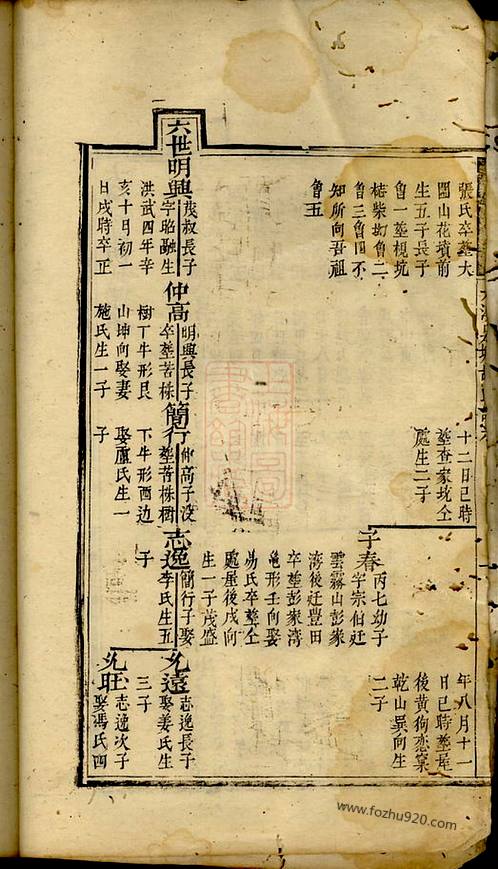 張氏卒葬大
圍山花墳前
生五子長子
魯一葬梘坑
魯二
魯三魯四不
知所向吾祖
魯五
十二日已時
葬查家坑仝
處生二子
子春
丙七幼子
字宗伯迁
雲霧山彭家
湾後迁豊田
卒葬彭家湾
龟形壬向娶
易氏卒葬仝
處虽後戌向
生一子茂盛
年八月十一
日已時葬屋
後黄狗恋窠
乾山巽向生
二子
六世
明興
茂叔長子
字昭融生
洪武四年辛
亥十月初一
日戌時卒正
仲高
明興長子
卒葬苦株
樹丁牛形艮
山坤向娶妻
施氏生一子
簡行
仲高子没
葬苦株樹
下牛形酉边
娶盧氏生一
子
志逸
簡行子娶
李氏生五
子
允遠
志逸長子
娶姜氏生
三子
允旺
志逸次子
娶馮氏四
www.fozhu920.com